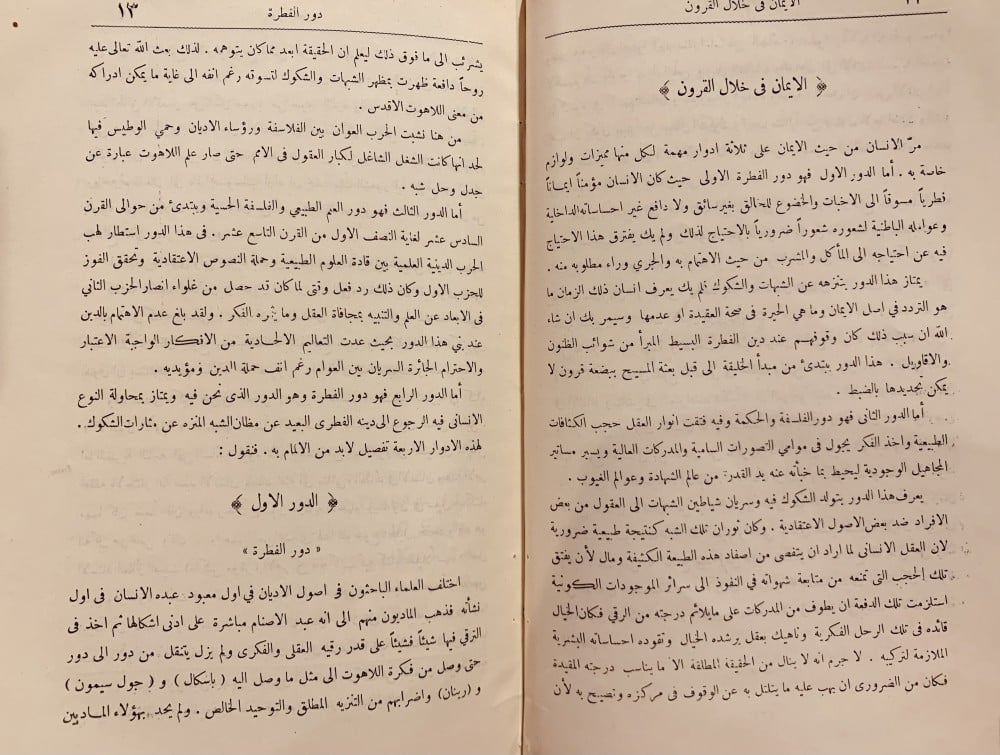 الايمان فى خلال القرون
﴿ الايمان فى خلال القرون ﴾
مرّ الانسان من حيث الايمان على ثلاثة ادوار مهمة لكل منها مميزات ولوازم
خاصة به . أما الدور الاول فهو دور الفطرة الاولى حيث كان الانسان مؤمناً ايماناً
فطرياً مسوقاً الى الاخبات والخضوع للخالق بغير سائق ولا دافع غير احساساته الداخلية
وعوامله الباطنية لشعوره شعوراً ضرورياً بالاحتياج لذلك ولم يك يفترق هذا الاحتياج
فيه عن احتياجه الى المأكل والمشرب من حيث الاهتمام به والجري وراء مطلوبه منه .
يمتاز هذا الدور بتنزهه عن الشبهات والشكوك فلم يك يعرف انسان ذلك الزمان ما
هو التردد فى اصل الايمان وما هى الحيرة فى صحة العقيدة او عدمها وسيمر بك ان شاء
الله ان سبب ذلك كان وقوفهم عند دين الفطرة البسيط المبرأ من شوائب الظنون
والاقاويل . هذا الدور يبتدئ من مبدأ الخليقة الى قبل بعثة المسيح ببضعة قرون لا
يمكن تحديدها بالضبط .
أما الدور الثانى فهو دور الفلسفة والحكمة وفيه فتقت انوار العقل حجب الكثافات
الطبيعية واخذ الفكر يجول فى موامي التصورات السامية والمدركات العالية ويسبر مساتير
المجاهيل الوجودية ليحيط بما خبأته عنه يد القدرة من عالم الشهادة وعوالم الغيوب .
يعرف هذا الدور بتولد الشكوك فيه وسريان شياطين الشبهات الى العقول من بعض
الافراد ضد بعض الاصول الاعتقادية . وكان ثوران تلك الشبه كنتيجة طبيعية ضرورية
لان العقل الانسانى لما اراد ان يتفصى من اصفاد هذه الطبيعة الكثيفة ومال لأن يفتق
تلك الحجب التى تمنعه من متابعة شهواته فى النفوذ الى سرائر الموجودات الكونية
استلزمت تلك الدفعة ان يطوف من المدركات على مايلائم درجته من الرقي فكان الخيال
قائده فى تلك الرحل الفكرية وناهيك بعقل يرشده الخيال وتقوده احساساته البشرية
الملازمة لتركيبه . لا جرم انه لا ينال من الحقيقة المطلقة الا ما يناسب درجته المقيدة
فكان من الضرورى ان يهب عليه ما يتلتل به عن الوقوف فى مركزه ونصيح به لأن
دور الفطرة ١٣
يشرئب الى ما فوق ذلك ليعلم ان الحقيقة ابعد مما كان يتوهمه . لذلك بعث الله تعالى عليه
روحاً دافعة ظهرت بمظهر الشبهات والشكوك لتسوقه رغم انفه الى غاية ما يمكن ادراكه
من معنى اللاهوت الاقدس .
من هنا نشبت الحرب العوان بين الفلاسفة ورؤساء الاديان وحمي الوطيس فيها
لحد انها كانت الشغل الشاغل لكبار العقول فى الامم حتى صار علم اللاهوت عبارة عن
جدل وحل شبه .
أما الدور الثالث فهو دور العلم الطبيعي والفلسفة الحسية ويبتدئ من حوالى القرن
السادس عشر لغاية النصف الاول من القرن التاسع عشر . فى هذا الدور استطار لهب
الحرب الدينية العلمية بين قادة العلوم الطبيعية وحملة النصوص الاعتقادية وتحقق الفوز
للحزب الاول وكان ذلك رد فعل وقتى لما كان قد حصل من غلواء انصار الحزب الثاني
فى الابعاد عن العلم والتنبيه بمجافاة العقل وما يثمره الفكر . ولقد بلغ عدم الاهتمام بالدين
عند بني هذا الدور بحيث عدت التعاليم الالحادية من الافكار الواجبة الاعتبار
والاحترام الجائزة السريان بين العوام رغم انف حملة الدين ومؤيديه .
أما الدور الرابع فهو دور الفطرة وهو الدور الذى نحن فيه ويمتاز بمحاولة النوع
الانسانى فيه الرجوع الى دينه الفطرى البعيد عن مظان الشبه المنزه عن مثارات الشكوك .
لهذه الادوار الاربعة تفصيل لابد من الالمام به . فنقول :
﴿ الدور الاول ﴾
« دور الفطرة »
اختلف العلماء الباحثون فى اصول الاديان في اول معبود عبده الانسان فى اول
نشأته فذهب الماديون منهم الى انه عبد الاصنام مباشرة على ادنى اشكالها ثم اخذ فى
الترقي فيها شيئاً فشيئاً على قدر رقيه العقلى والفكرى ولم يزل يتنقل من دور الى دور
حتى وصل من فكرة اللاهوت الى مثل ما وصل اليه ( باسكال ) و ( جول سيمون )
و (رينان) واضرابهم من التنزيه المطلق والتوحيد الخالص . ولم يحد بهؤلاء الماديين